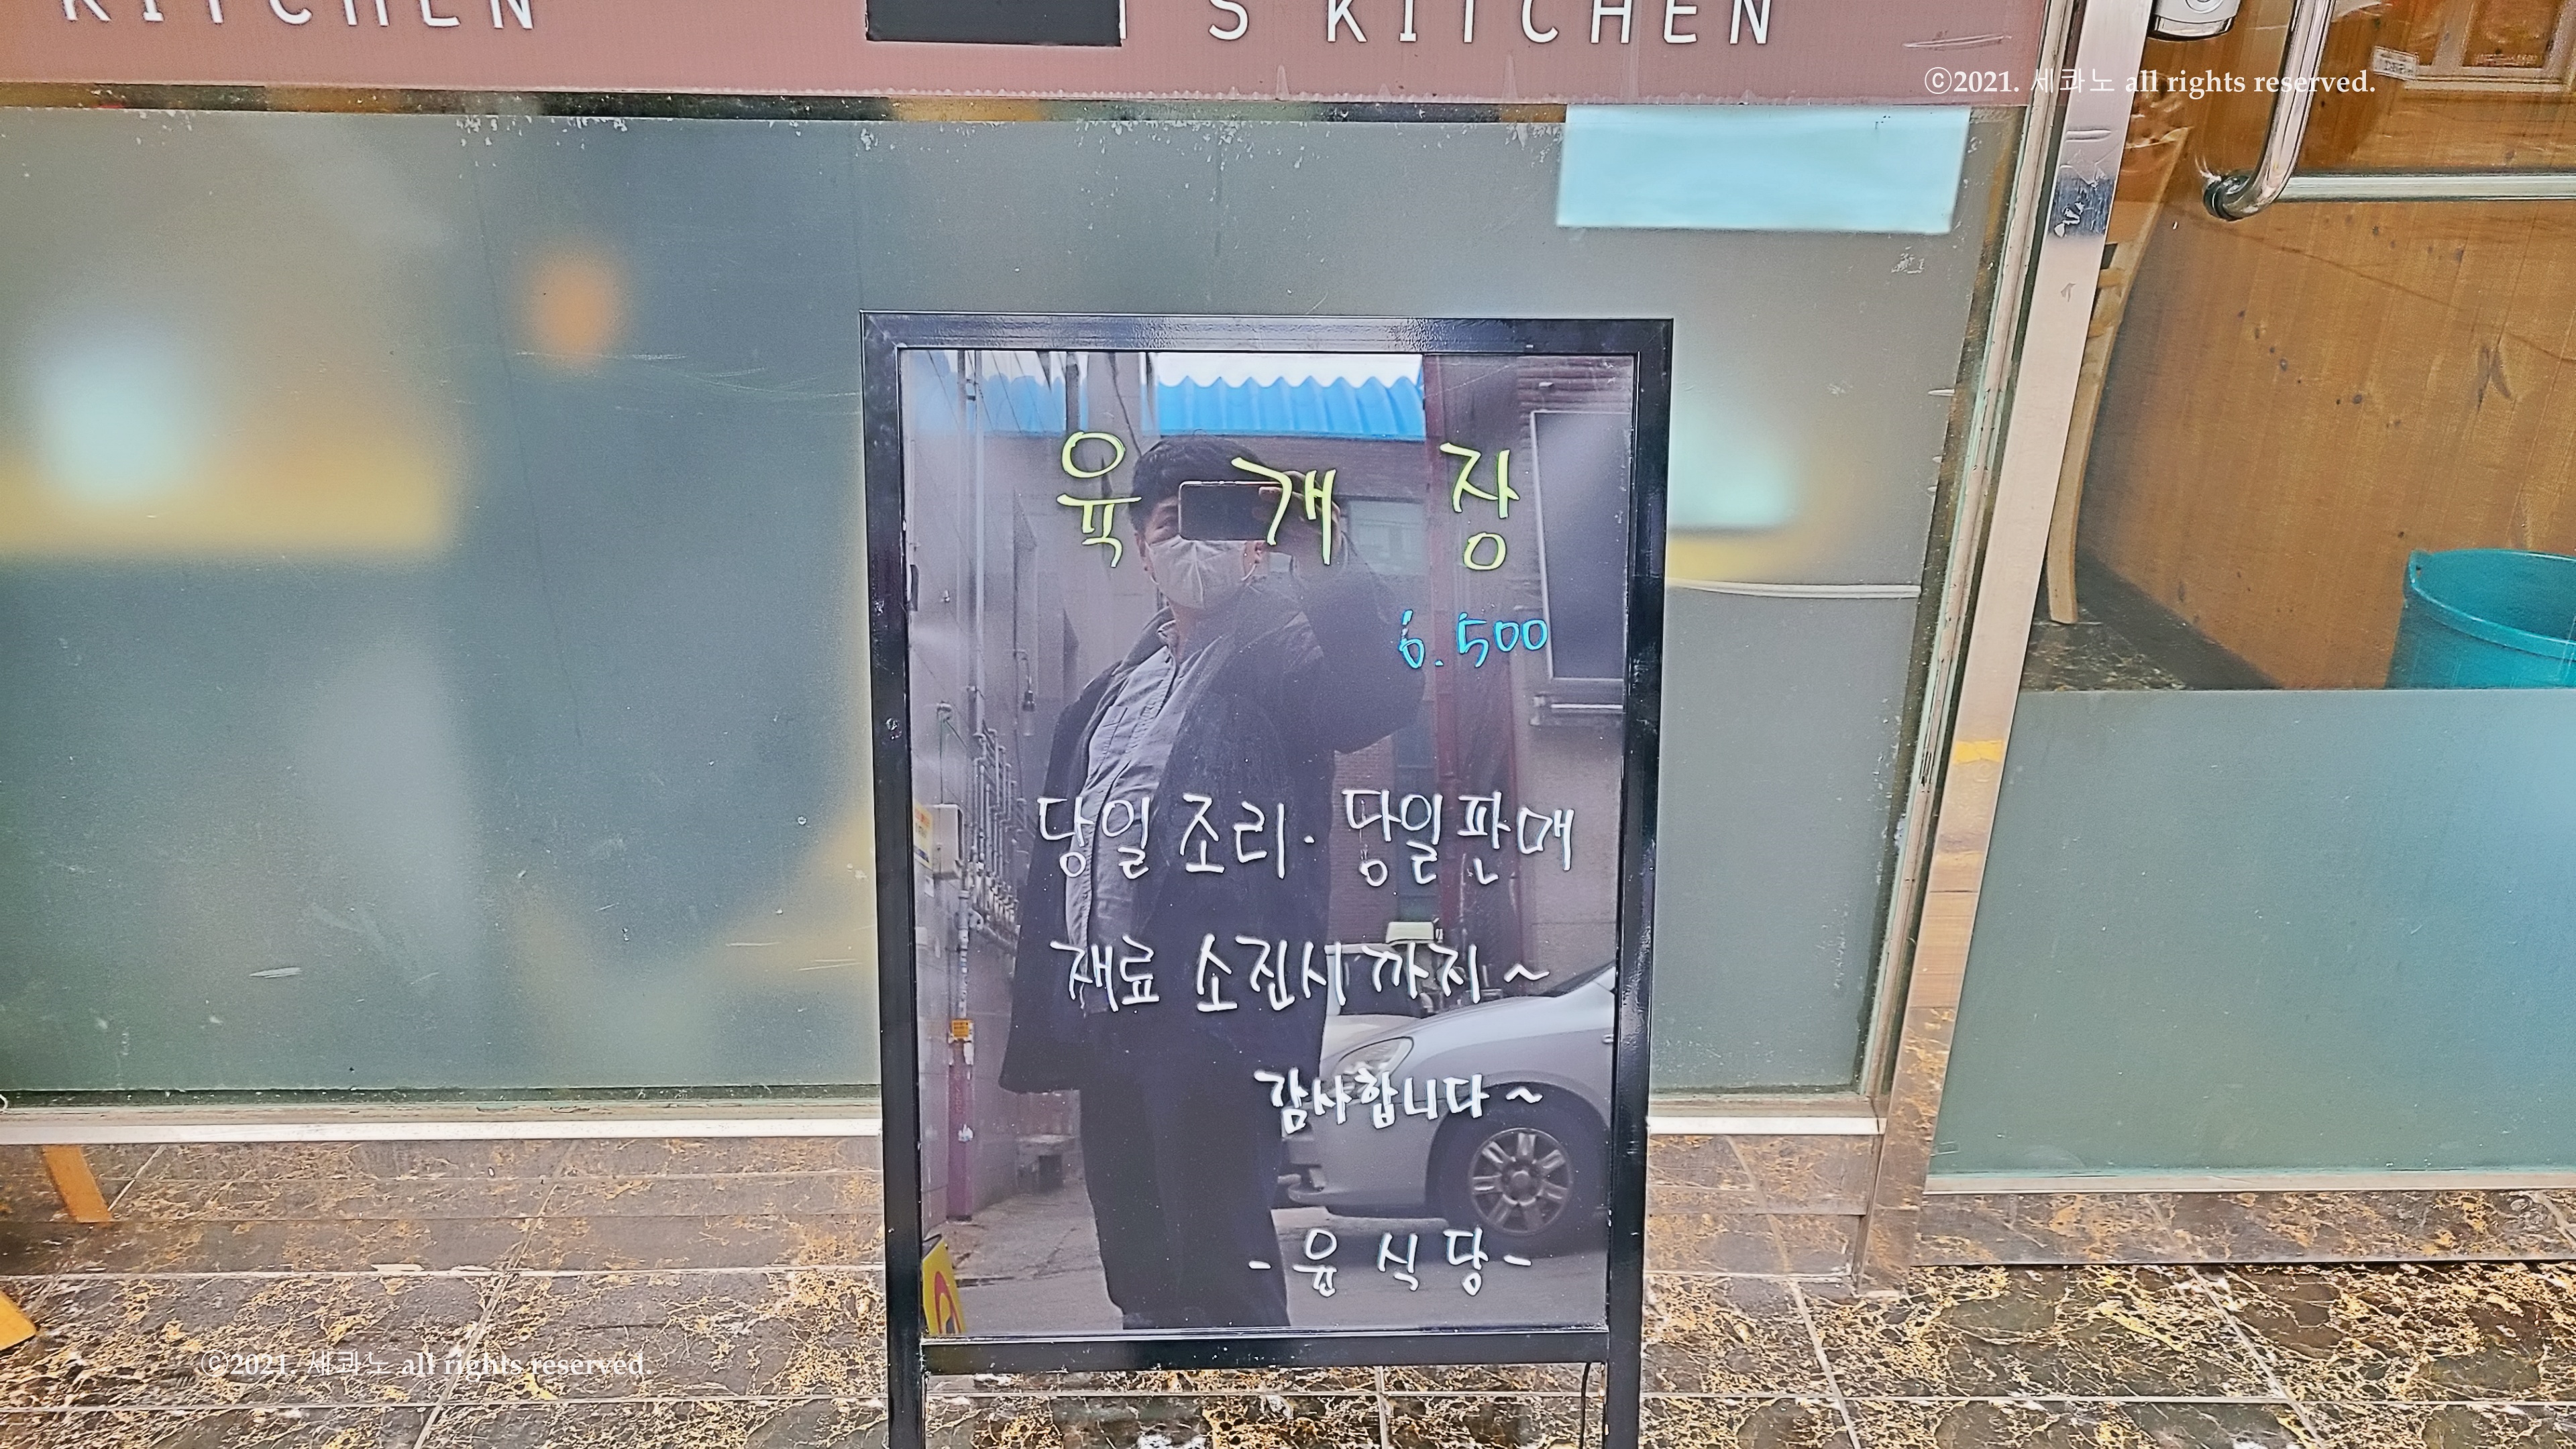 KITCHEN
S KITCHEN
©2021. 세콰노 all rights reserved.
육 개 장
6.500
당일 조리. 당일판매
재료 소진시 까지~
감사합니다~
-윤 식 당-
©2021. 세콰노 all rights reserved.